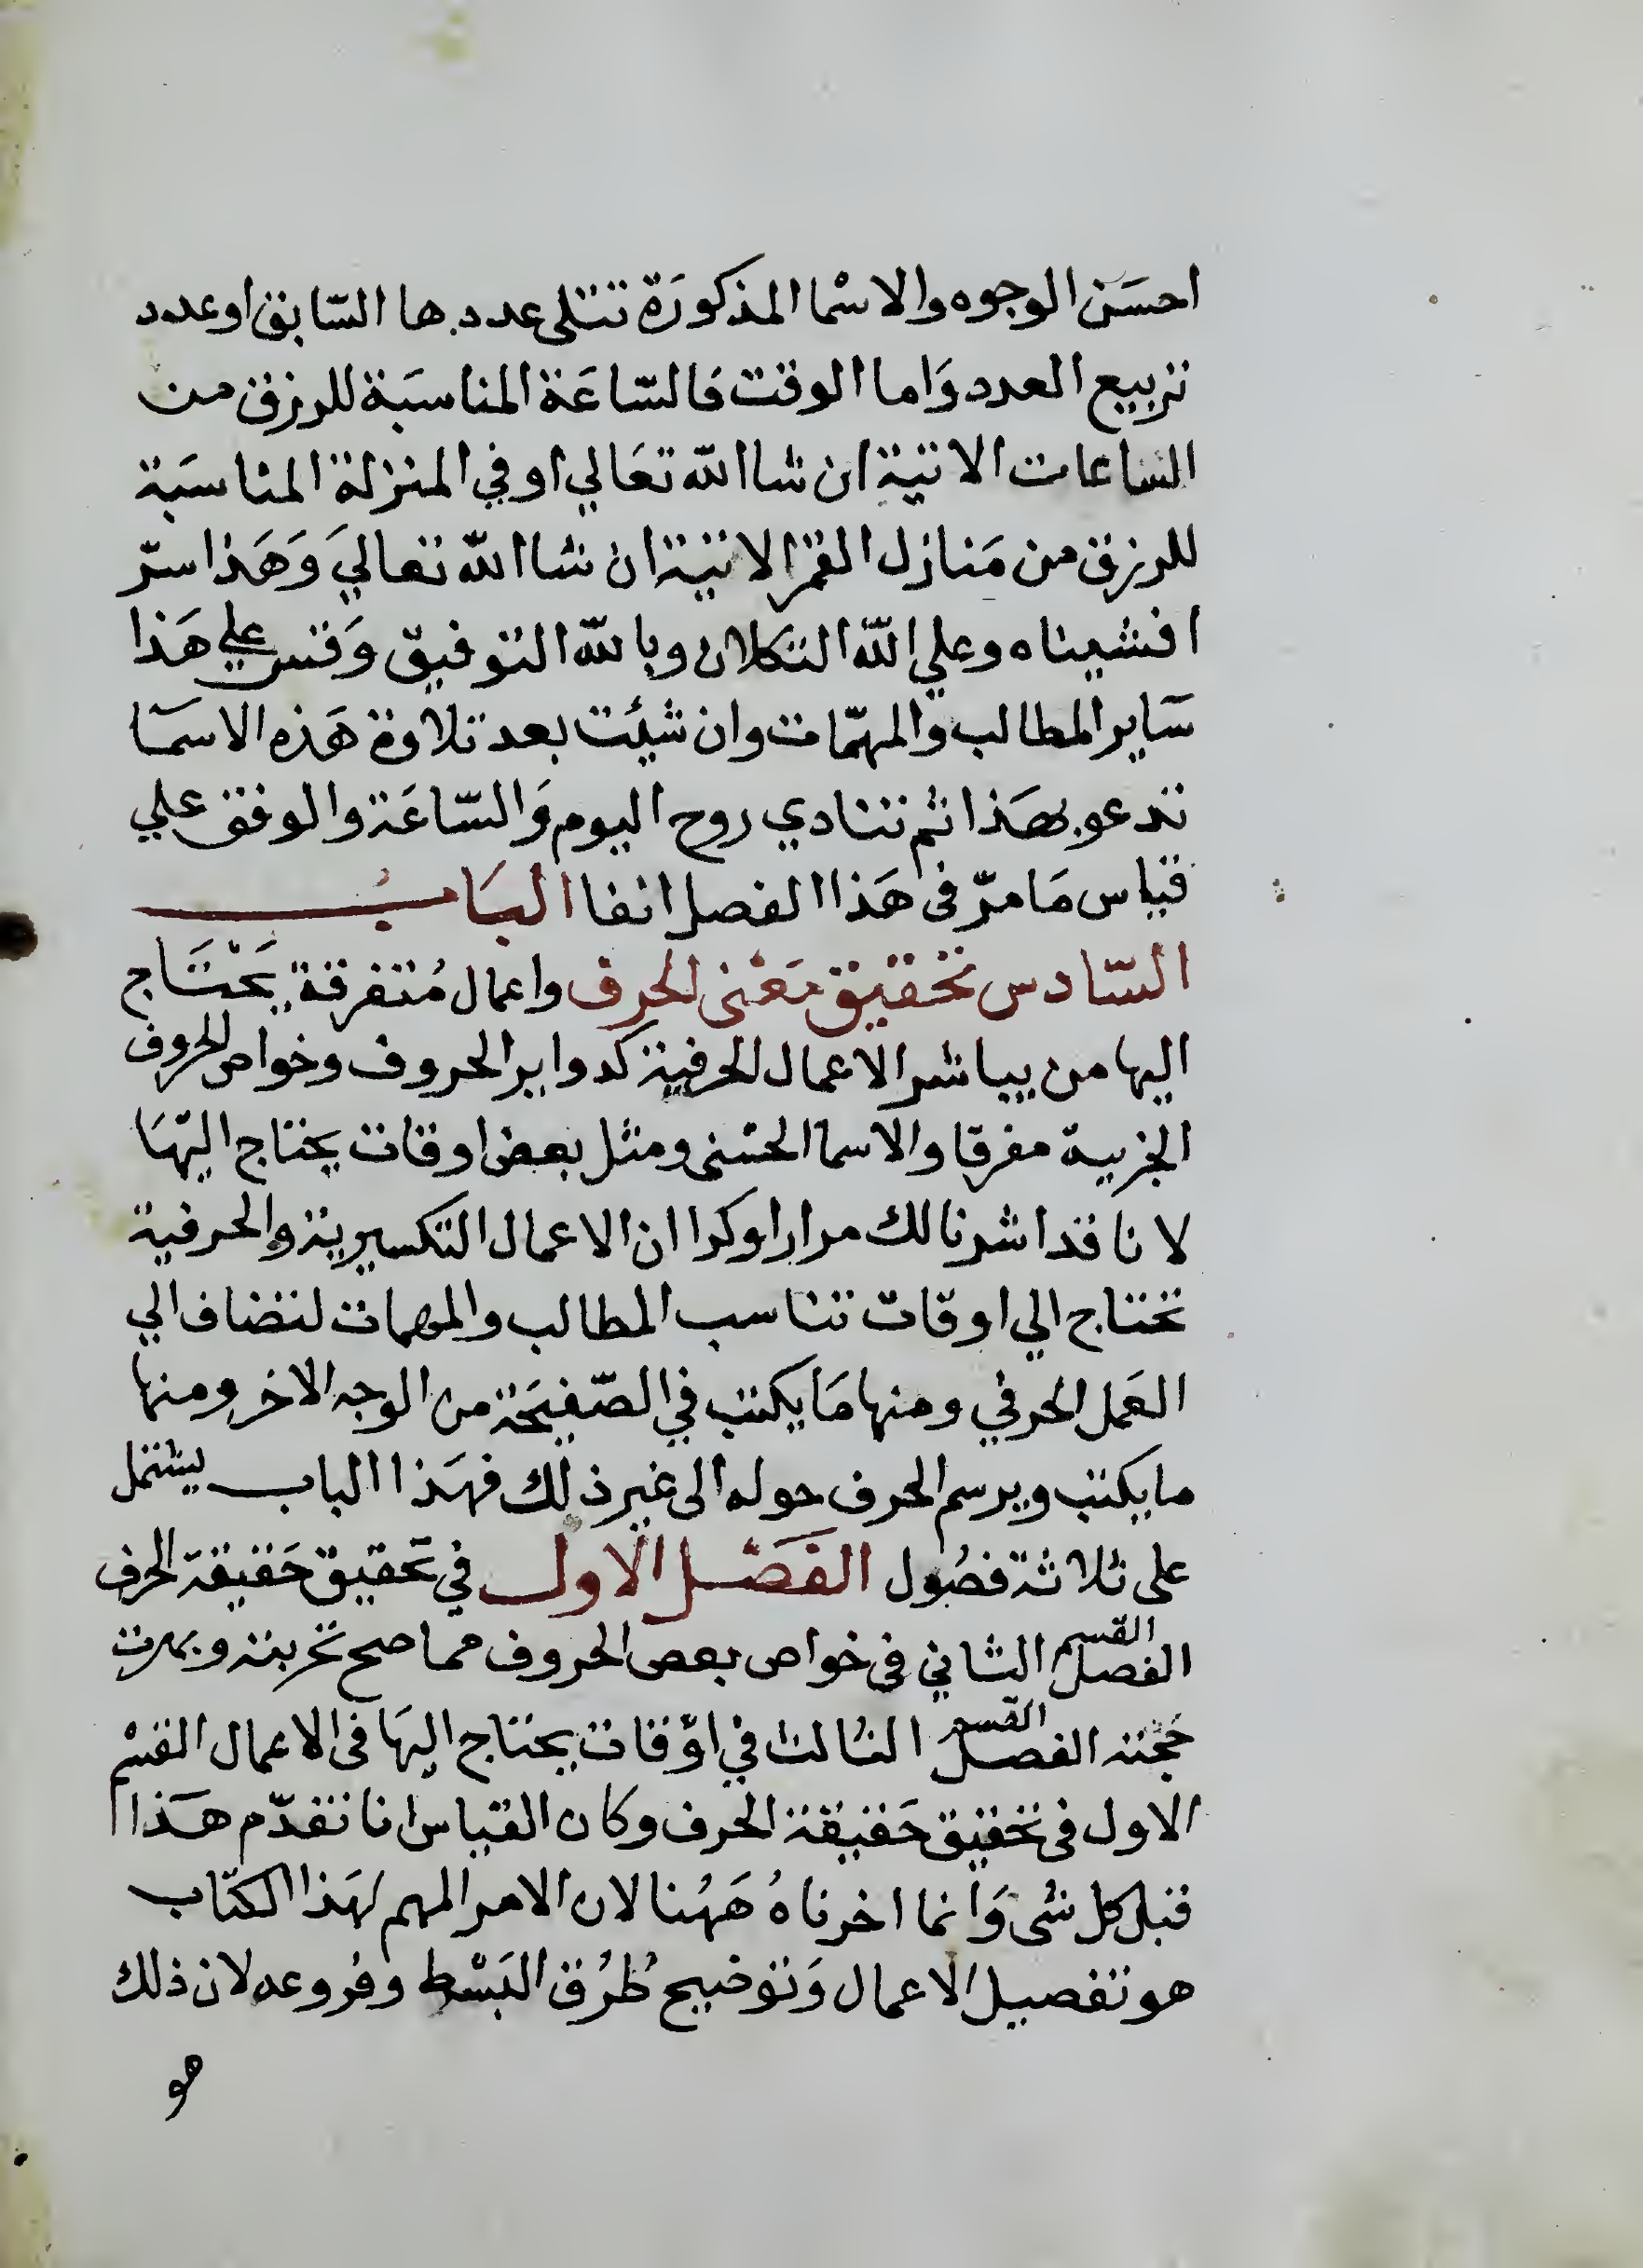 احسَن الوجوه والاسْما المذكورَة تتلى عددها السّابق اوعدد
تربيع العدد وَاما الوقت فالسّاعَة المناسبَة للرزق من
الساعات الاتية ان شا الله تعَالي او في المنزلة المناسَبة
للرزق من مَنازل القمر الاتية ان شا الله تعاليَ وَهَذا سرّ
افشيناه وعلي الله التكلان وبالله التوفيق وَقس علي هَذا
سَاير المطالب والمهمّات وان شيئت بعد تلاوة هَذه الاسمَا
تدعو بهَذا ثم تنادي روح اليوم وَالسّاعَة والوفق علي
قياس مَا مرّ فى هَذا الفصل انفا البَابُ
السّادس تحقيق مَعْنى الحرف واعمال مُتفرقة يَحْتَاج
اليها من يباشر الاعمال الحرفية كدواير الحروف وخواص الحروف
الجزيية مفرقا والاسما الحسْنى ومثل بعض اوقات يحتاج اليهَا
لانا قد اشرنا لك مرارا وكرا ان الاعمال التكسيرية والحرفية
تحتاج الي اوقات تناسب المطالب والمهمات لتضاف الي
العَمل الحرفي ومنها مَا يكتب في الصّفيحَة من الوجه الاخر ومنها
ما يكتب ويرسم الحرف حوله الى غير ذلك فهَذا الباب يشتمل
على ثلاثة فصُول الفَصْل الاول في تحقيق حَقيقة الحرف
القسم
الفصل الثاني فى خواص بعض الحروف مما صح تجربته وبهرت
القسم
حُجّته الفصل الثالث في اوْقات يحتاج اليهَا فى الاعمال القسْم
الاول فى تحقيق حَقيقة الحرف وكان القياس انا نقدّم هَذا
قبل كل شى وَانما اخرناهُ هَهُنا لان الامر المهم لهَذا الكتاب
هو تفصيل الاعمال وَتوضيح طُرُق البَسْط وفروعه لان ذلك
هو